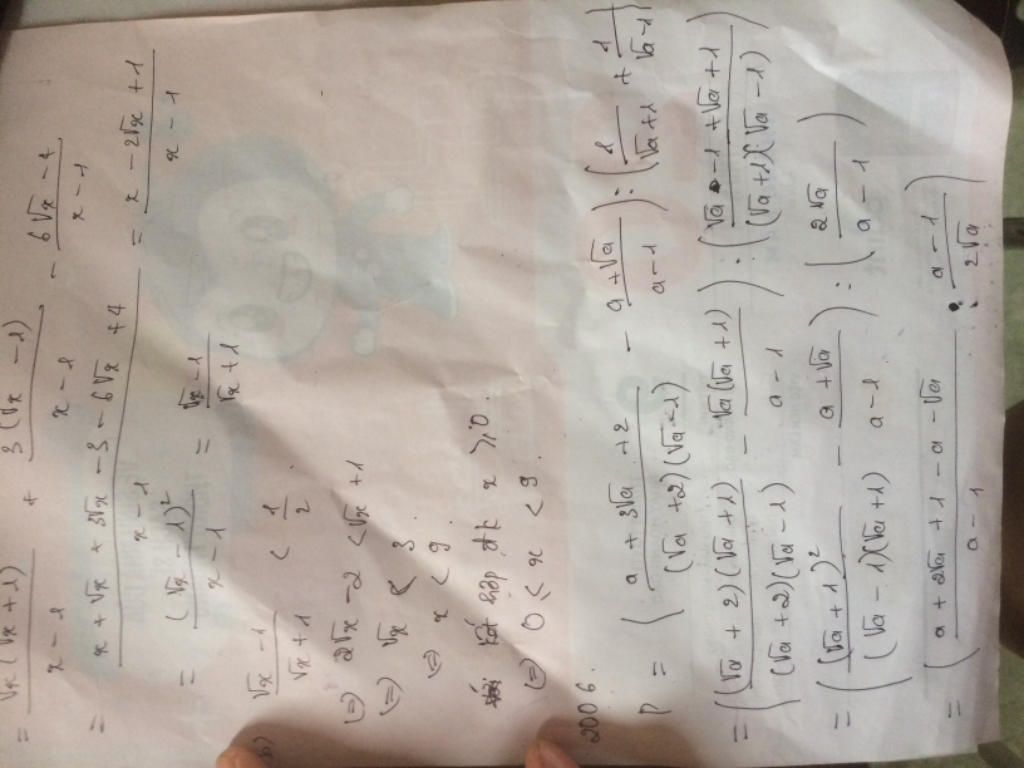 = √x(√x+1) / x-1 + 3(√x-1) / x-1 - 6√x-4 / x-1
= x+√x+3√x-3-6√x+4 / x-1 = x-2√x+1 / x-1
= (√x-1)² / x-1 = √x-1 / √x+1
b) √x-1 / √x+1 < 1/2
(=) 2√x-2 < √x+1
(=) √x < 3
(=) x < 9
Kết hợp đk x ≥ 0.
(=) 0 ≤ x < 9
2006.
P = ( a+3√a+2 / (√a+2)(√a-1) - a+√a / a-1 ) : ( 1 / √a+1 + 1 / √a-1 )
= ( (√a+2)(√a+1) / (√a+2)(√a-1) - √a(√a+1) / a-1 ) : ( √a-1+√a+1 / (√a+1)(√a-1) )
= ( (√a+1)² / (√a-1)(√a+1) - a+√a / a-1 ) : ( 2√a / a-1 )
= ( a+2√a+1-a-√a / a-1 . a-1 / 2√a )